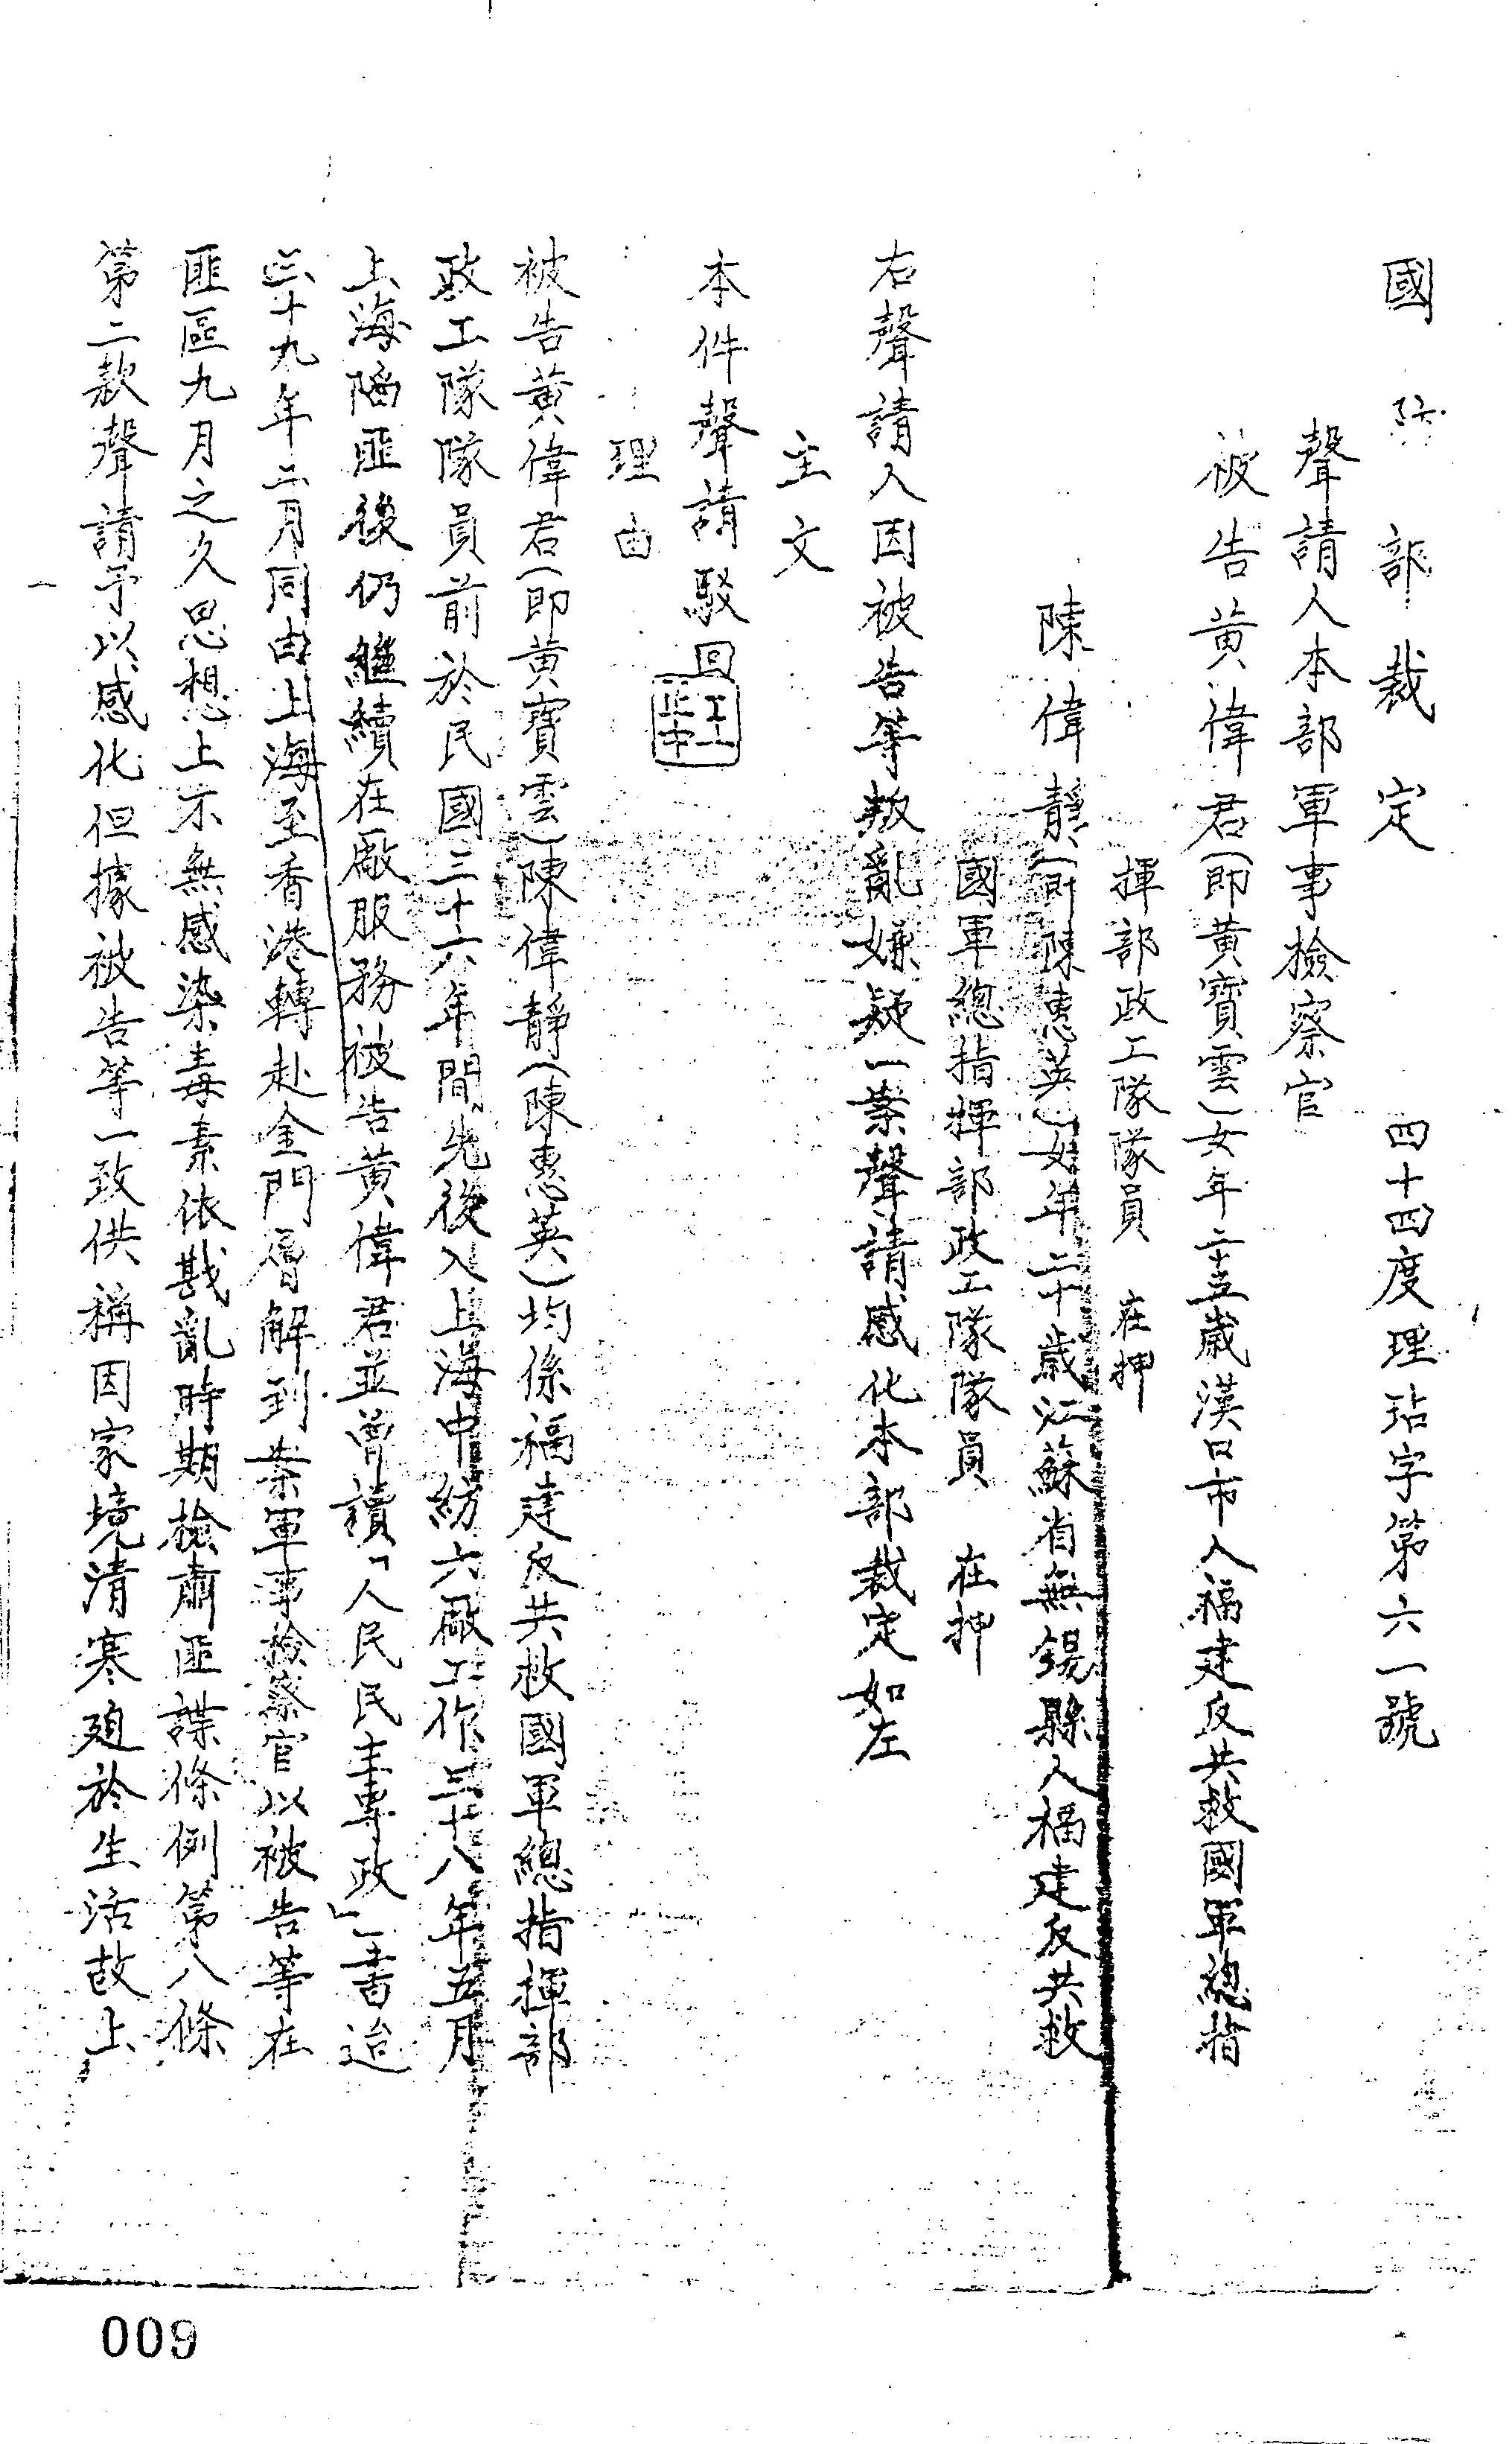 國防部裁定　四十四度理玷字第六一號
聲請人本部軍事檢察官
被告黃偉君(即黃寶雲)女年二十五歲漢口市人福建反共救國軍總指
揮部政工隊隊員　在押
陳偉靜(即陳惠英)女年二十歲江蘇省無錫縣人福建反共救
國軍總指揮部政工隊隊員　在押
右聲請人因被告等叛亂嫌疑一案聲請感化本部裁定如左
主文
本件聲請駁回
理由
被告黃偉君(即黃寶雲)陳偉靜(陳惠英)均係福建反共救國軍總指揮部
政工隊隊員前於民國三十六年間先後入上海中紡六廠工作三十八年五月
上海陷匪後仍繼續在廠服務被告黃偉君並曾讀「人民民主專政」一書迨
三十九年二月同由上海至香港轉赴金門層解到案軍事檢察官以被告等在
匪區九月之久思想上不無感染毒素依戡亂時期檢肅匪諜條例第八條
第二款聲請予以感化但據被告等一致供稱因家境清寒廹於生活故上
一
009